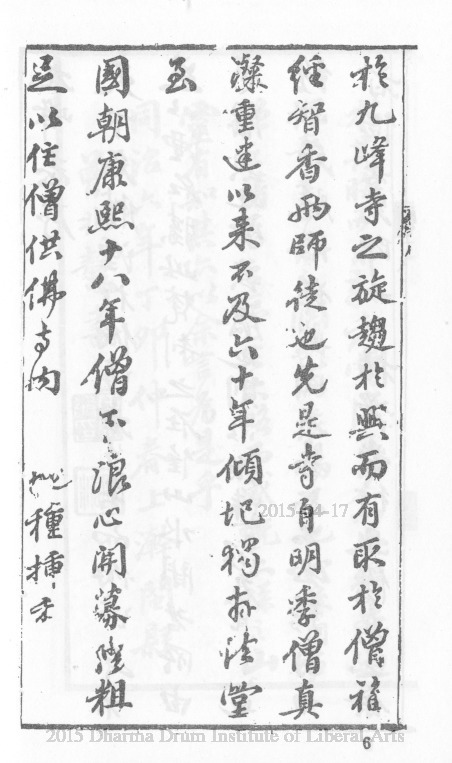 於九峰寺之旋趨於興而有取於僧雅
經智香兩師徒也先是寺自明季僧真
重建以来不及六十年傾圮獨存法堂
至
國朝康熙十八年僧不浪心開募粗
足以住僧供佛寺内種插禾
2015-04-17
2015 Dharma Drum Institute of Liberal Arts
6